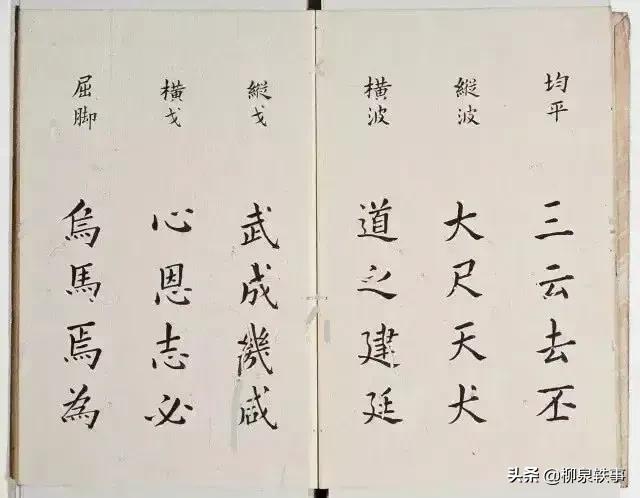 均平
三云去丕
縱波
大尺天犬
橫波
道之建延
縱戈
武成幾咸
橫戈
心恩志必
屈脚
烏馬焉為
头条 @柳泉轶事